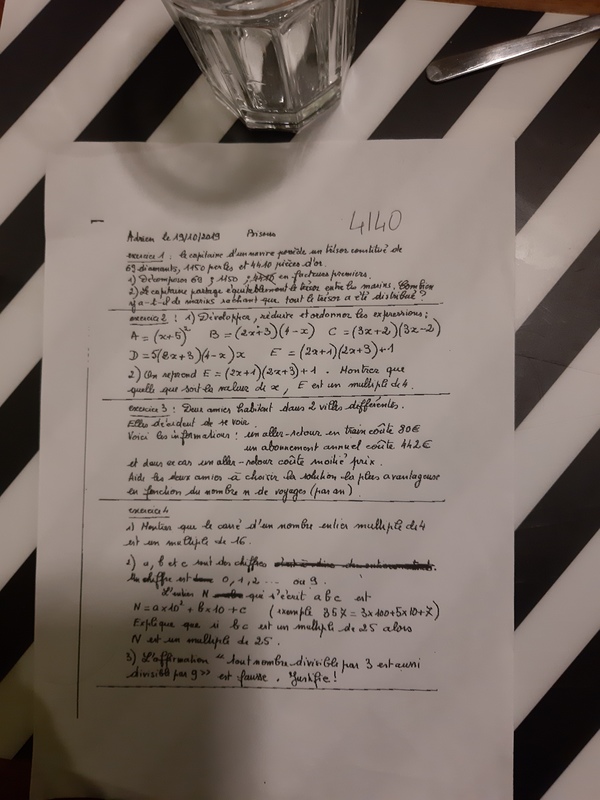 Adrien le 19/10/2019 Prisous
4140
exercice 1 Le capitaine d'un navire possède un trésor constitué de
69 diamants, 1150 perles et 4140 pièces d'or
1) Décomposer 69 ; 1150 ; 4140 en facteurs premiers.
2) Le capitaine partage équitablement le trésor entre les marins. Combien
y a-t-il de marins sachant que tout le trésor a été distribué ?
exercice 2 : 1) Développer, réduire et ordonner les expressions :
A = (x+5)² B = (2x+3)(4-x) C = (3x+2)(3x-2)
D = 5(8x+3)(4-x)x E = (2x+1)(2x+3)+1
2) On reprend E = (2x+1)(2x+3)+1. Montrer que
quelle que soit la valeur de x, E est un multiple de 4.
exercice 3 : Deux amies habitent dans 2 villes différentes.
Elles décident de se voir
Voici les informations : un aller-retour en train coûte 80€
un abonnement annuel coûte 442€
et dans ce cas, un aller-retour coûte moitié prix.
Aide les deux amies à choisir la solution la plus avantageuse
en fonction du nombre n de voyages (par an)
exercice 4
1) Montrer que le carré d'un nombre entier multiple de 4
est un multiple de 16.
2) a, b et c sont des chiffres
Un chiffre est 0, 1, 2, ... ou 9.
Le nombre N qui s'écrit abc est
N = a×10² + b×10 + c (exemple 357 = 3×100+5×10+7)
Explique que si bc est un multiple de 25 alors
N est un multiple de 25
3) L'affirmation « tout nombre divisible par 3 est aussi
divisible par 9 » est fausse, Justifie !